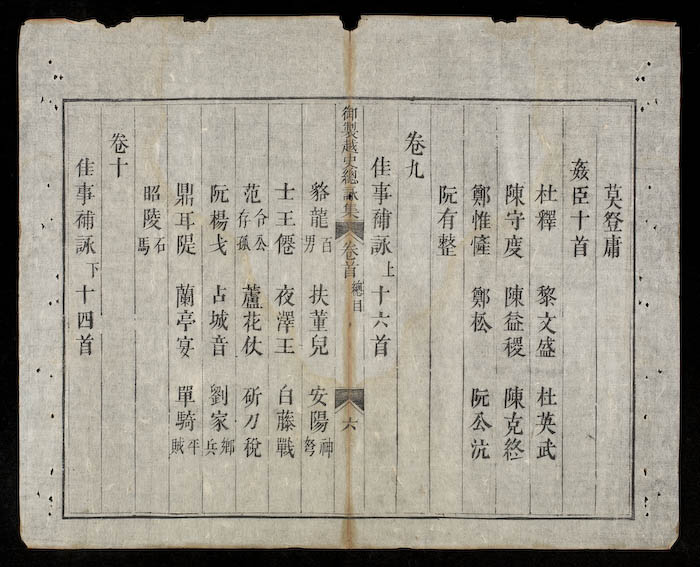 莫登庸
姦臣十首
杜釋 黎文盛 杜英武
陳守度 陳益稷 陳克終
鄭惟㦃 鄭松 阮公沆
阮有整
卷九
佳事補詠上十六首
御製越史總詠集 卷首 總目 六
貉龍百男 扶董兒 安陽神弩
士王僊 夜澤王 白藤戰
范令公存孤 蘆花仗 斫刀稅
阮楊戈 占城音 劉家鄉兵
鼎耳隄 蘭亭宴 單騎平賊
昭陵石馬
卷十
佳事補詠下十四首